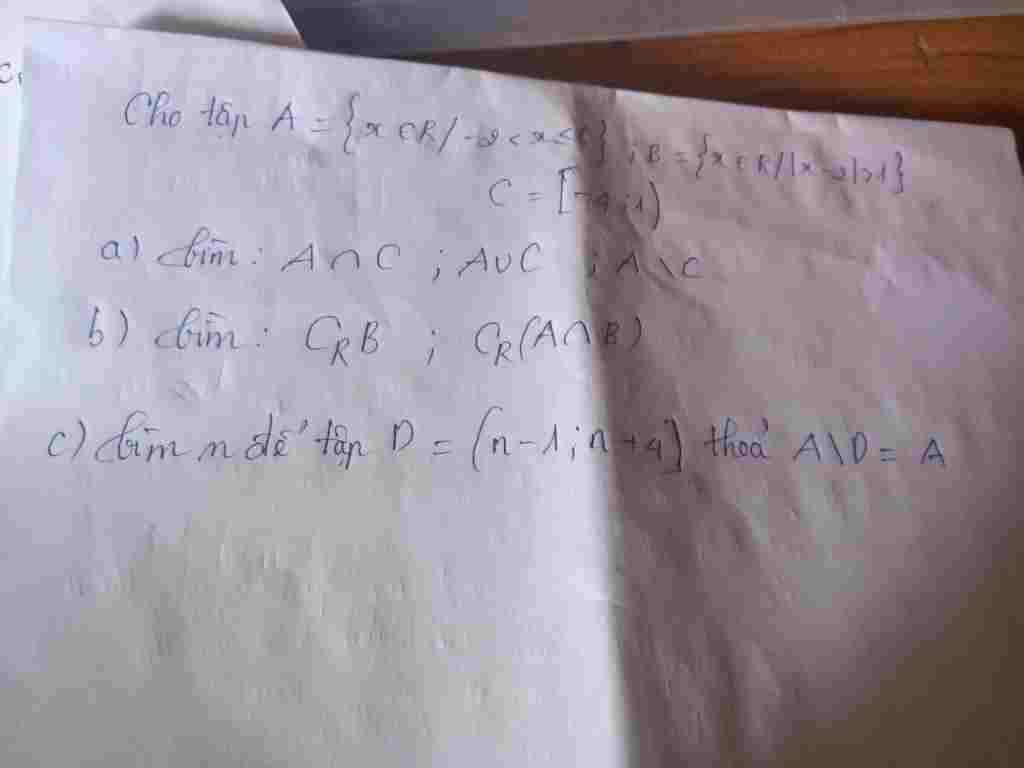 Cho tập A = {x ∈ R / -2 < x ≤ }; B = {x ∈ R / |x-2| > 1}
C = [-4; 1)
a) tìm: A ∩ C ; A ∪ C ; A \ C
b) tìm: C_R B ; C_R (A ∩ B)
c) tìm n để tập D = (n-1; n+4] thoả A \ D = A